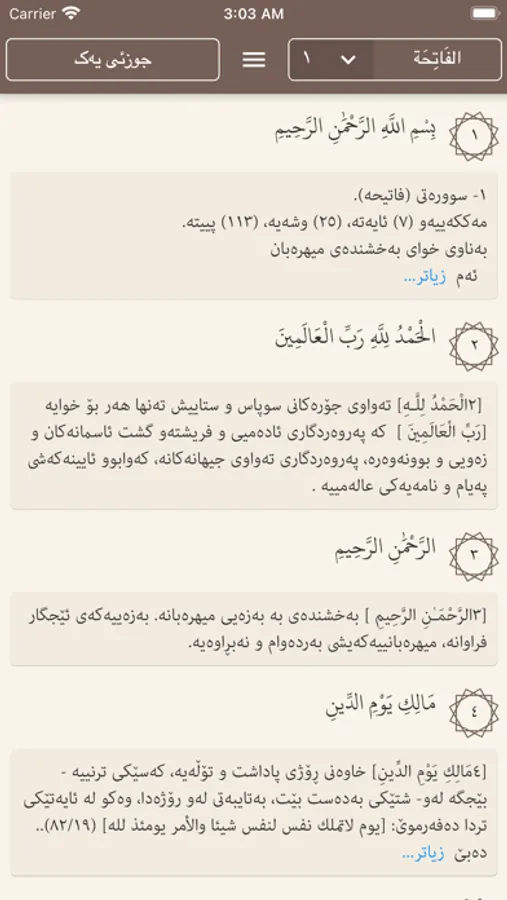 Carrier 3:03 AM
الفَاتِحَة ١ جوزئی یەک
١
بِسْمِ اللَّهِ الرَّحْمَٰنِ الرَّحِيمِ
١- سوورەتی (فاتیحە).
مەککەییەو (٧) ئایەتە، (٢٥) وشەیە، (١١٣) پییتە.
بەناوی خوای بەخشندەی میهرەبان
ئەم زیاتر...
٢
الْحَمْدُ لِلَّهِ رَبِّ الْعَالَمِينَ
[٢الْحَمْدُ لِلَّـهِ] تەواوی جۆرەکانی سوپاس و ستاییش تەنها هەر بۆ خوایە
[رَبِّ الْعَالَمِينَ ] کە پەروەردگاری ئادەمیی و فریشتەو گشت ئاسمانەکان و
زەویی و بوونەوەرە، پەروەردگاری تەواوی جیهانەکانە، کەوابوو ئایینەکەشی
پەیام و نامەیەکی عالەمییە .
٣
الرَّحْمَٰنِ الرَّحِيمِ
[٣الرَّحْمَـٰنِ الرَّحِيمِ ] بەخشندەی بە بەزەیی میهرەبانە. بەزەییەکەی ئێجگار
فراوانە، میهرەبانییەکەیشی بەردەوام و نەبڕاوەیە.
٤
مَالِكِ يَوْمِ الدِّينِ
[٤مَالِكِ يَوْمِ الدِّينِ] خاوەنی ڕۆژی پاداشت و تۆڵەیە، کەسێکی ترنییە -
بێجگە لەو- شتێکی بەدەست بێت، بەتایبەتی لەو رۆژەدا، وەکو لە ئایەتێکی
تردا دەفەرموێ: [يوم لاتملك نفس لنفس شيئا والأمر يومئذ لله] (٨٢/١٩)..
دەبێ زیاتر...